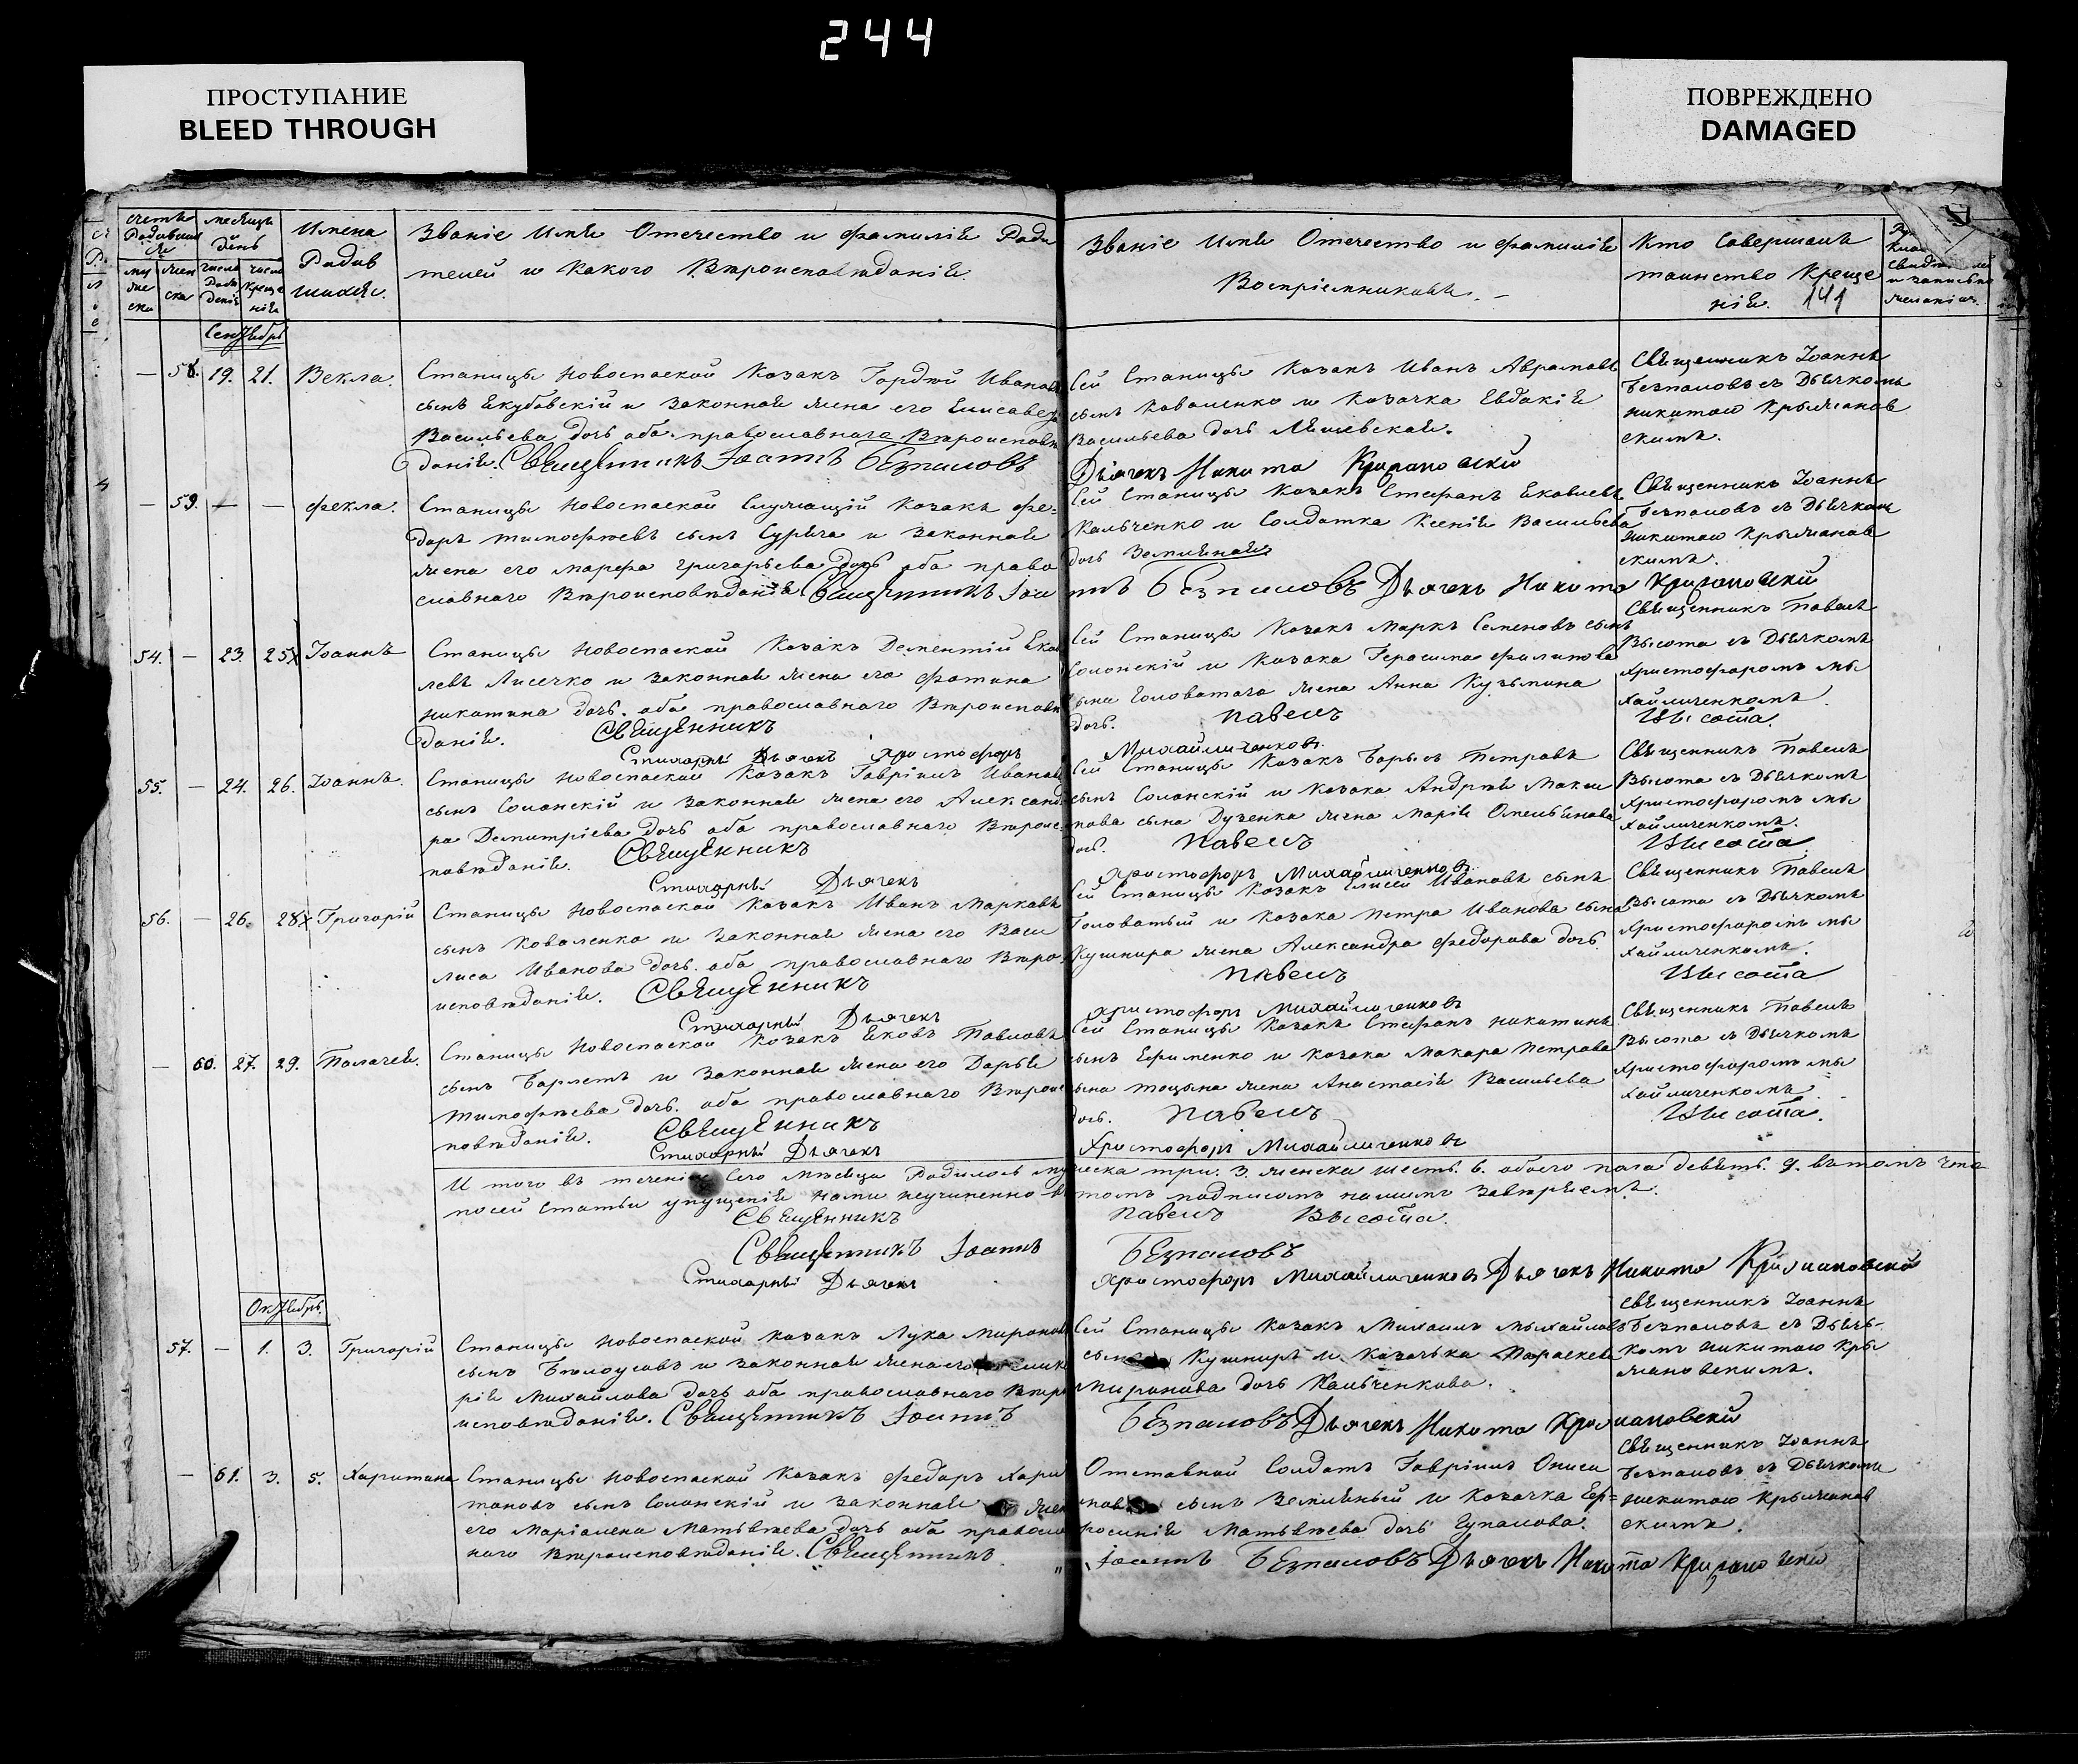 244
ПРОСТУПАНИЕ
BLEED THROUGH
ПОВРЕЖДЕНО
DAMAGED
счетъ Родившихся
муже ска
жен ска
месяцъ и день
число Рожденія
число Крещенія
Имена Родившихся.
Званіе Имя Отечество и фамилія Роди
телей и Какого Вѣроисповѣданія
Званіе Имя Отечество и фамилія
Воспріемниковъ.
Кто Совершалъ
таинство Креще
нія. 141
Сентябрь
— 58. 19. 21. Векла.
Станицы Новоспаской Козакъ Гордѣй Ивановъ
сынъ Якубовскій и Законная жена его Елисавета
Васильева дочь оба православнаго Вѣроисповѣ
данія. Священникъ Іоаннъ Безпаловъ
Сей Станицы Козакъ Иванъ Аврамовъ
сынъ Коваленко и Козачка Евдакія
Васильева дочь
Дьячекъ Никита
Священникъ Іоаннъ
Безпаловъ съ Дьячкомъ
никитою Крыжанов
скимъ.
— 59. — — Фекла.
Станицы Новоспаской Служащій Козакъ Фе=
доръ тимофѣевъ сынъ Суржа и Законная
жена его марфа григорьева дочь оба право
славнаго Вѣроисповѣданія Священникъ Іоа
Сей Станицы Козакъ Стефанъ Яковлевъ
Кальченко и Солдатка Ксенія Васильева
дочь Землиная
ннъ Безпаловъ Дьячекъ Никита
Священникъ Іоаннъ
Безпаловъ съ Дьячкомъ
никитою Крыжанов
скимъ.
54. — 23. 25 Іоаннъ
Станицы Новоспаской Козакъ Дементій Яков
левъ Лисечко и Законная жена его Фотина
никитина дочь. оба православнаго Вѣроисповѣ
данія. Священникъ
Стихарный Дьячекъ Христофоръ
Сей Станицы Козакъ Маркъ Семеновъ сынъ
Солонскій и Козака Герасима Филипова
сына Головатаго жена Анна Кузьмина
дочь. Павелъ
Михайличенковъ
Священникъ Павелъ
Высота съ Дьячкомъ
Христофоромъ Ми
хайличенкомъ.
Высота.
55. — 24. 26. Іоаннъ.
Станицы Новоспаской Козакъ Гавріилъ Ивановъ
сынъ Солонскій и Законная жена его Александ
ра Демитріева дочь оба православнаго Вѣроис=
повѣданія. Священникъ
Стихарный Дьячекъ
Сей Станицы Козакъ Борысъ Петровъ
сынъ Солонскій и Козака Андрѣя Макси
мова сына Дученка жена Марія Омельянова
дочь. Павелъ
Христофоръ Михайличенковъ
Священникъ Павелъ
Высота съ Дьячкомъ
Христофоромъ Ми
хайличенкомъ.
Высота
56. — 26. 28 Григорій
Станицы Новоспаской Козакъ Иванъ Марковъ
сынъ Коваленко и Законная жена его Васи
лиса Иванова дочь. оба православнаго Вѣро
исповѣданія. Священникъ
Стихарный Дьячекъ
Сей Станицы Козакъ Елисей Ивановъ сынъ
Головатый и Козака Петра Иванова сына
Кушнира жена Александра Федорова дочь.
Павелъ
Христофоръ Михайличенковъ
Священникъ Павелъ
Высота съ Дьячкомъ
Христофоромъ Ми
хайличенкомъ.
Высота
— 60. 27. 29. Палагея.
Станицы Новоспаской Козакъ Яковъ Павловъ
сынъ и Законная жена его Дарья
тимофѣева дочь. оба православнаго Вѣроис
повѣданія. Священникъ
Стихарный Дьячекъ
Сей Станицы Козакъ Стефанъ никитинъ
сынъ Ефименко и Козака Макара Петрова
сына жена Анастасія Васильева
дочь. Павелъ
Христофоръ Михайличенковъ
Священникъ Павелъ
Высота съ Дьячкомъ
Христофоромъ Ми
хайличенкомъ.
Высота.
И того въ теченіи Сего Мѣсяца Родилось мужеска три. 3. женска шесть. 6. обоего пола девять. 9. въ томъ что
посей Статьи упущенія нами неучиненно въ томъ подписомъ нашимъ завѣряемъ.
Священникъ Павелъ Высота.
Священникъ Іоаннъ Безпаловъ
Стихарный Дьячекъ Христофоръ Михайличенковъ Дьячекъ Никита Крижановскій
Октябрь.
57. — 1. 3. Григорій
Станицы Новоспаской Козакъ Лука Мироновъ
сынъ Бѣлоусовъ и законная жена его
рія Михайлова дочь оба православнаго Вѣро
исповѣданія. Священникъ Іоаннъ
Сей Станицы Козакъ Михаилъ Михайловъ
сынъ Кушниръ и Козачька Параскевія
Миронова дочь Кальченкова.
Безпаловъ Дьячекъ Никита Крижановскій
Священникъ Іоаннъ
Безпаловъ съ Дьячь-
комъ никитою Кры
жановскимъ.
— 61. 3. 5. Харитина
Станицы Новоспаской Козакъ Федоръ Хари
тоновъ сынъ Солонскій и законная жена
его Маріамна Матьвѣева дочь оба правосла
наго Вѣроисповѣданія. Священникъ
Отставной Солдатъ Гавріилъ Ониси
мовъ сынъ Землиный и Козачка Еф=
росинія Матьвѣева дочь
Іоаннъ Безпаловъ Дьячекъ Никита
Священникъ Іоаннъ
Безпаловъ съ Дьячкомъ
никитою Крыжанов
скимъ.